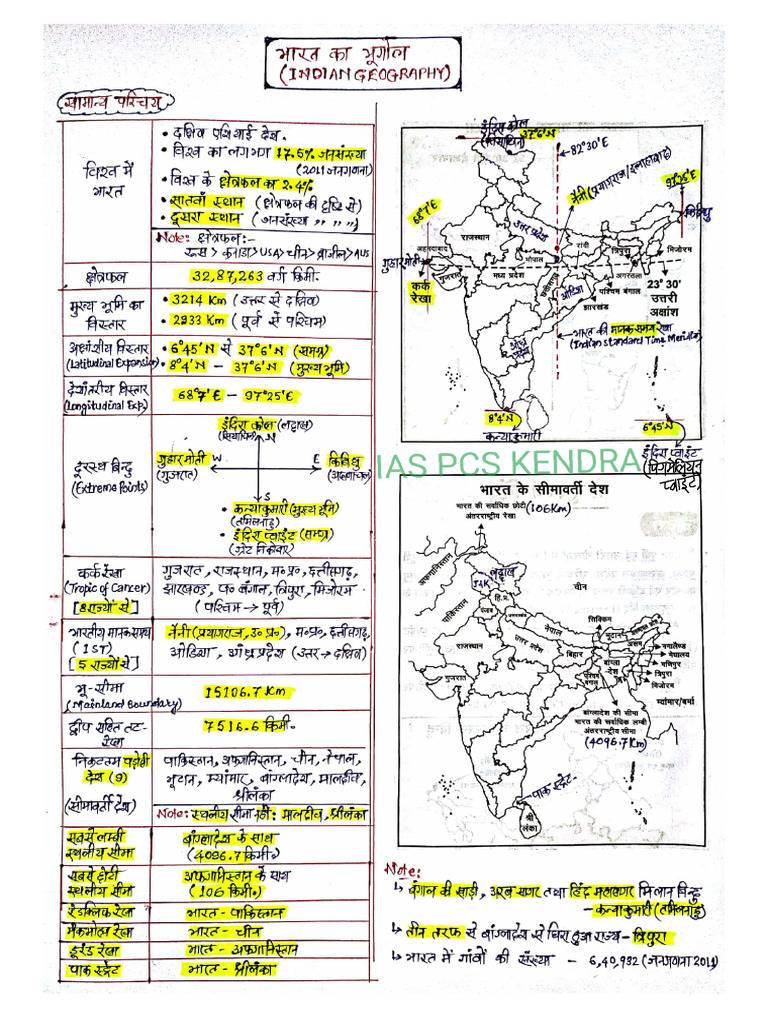 भारत का भूगोल
(INDIAN GEOGRAPHY)
सामान्य परिचय
विश्व में
भारत
• दक्षिण एशियाई देश.
• विश्व का लगभग 17.5% जनसंख्या
(2011 जनगणना)
• विश्व के क्षेत्रफल का 2.4%
• सातवाँ स्थान (क्षेत्रफल की दृष्टि से)
• दूसरा स्थान (जनसंख्या " " ")
Note: क्षेत्रफल:-
रूस > कनाडा > USA > चीन > ब्राजील > AUS
क्षेत्रफल
32,87,263 वर्ग किमी.
मुख्य भूमि का
विस्तार
• 3214 Km (उत्तर से दक्षिण)
• 2933 Km (पूर्व से पश्चिम)
अक्षांशीय विस्तार
(Latitudinal Expansion)
• 6°45'N से 37°6'N (समग्र)
• 8°4'N - 37°6'N (मुख्य भूमि)
देशांतरीय विस्तार
(Longitudinal Exp.)
68°7'E - 97°25'E
दूरस्थ बिन्दु
(Extreme Points)
इंदिरा कोल (लद्दाख)
(सियाचिन)
N
गुहारमोती W
(गुजरात)
E किबिथु
(अरुणाचल)
S
• कन्याकुमारी (मुख्य भूमि)
(तमिलनाडु)
• इंदिरा प्वाइंट (समग्र)
(ग्रेट निकोबार)
कर्क रेखा
(Tropic of Cancer)
[8 राज्यों से]
गुजरात, राजस्थान, म०प्र०, छत्तीसगढ़,
झारखण्ड, प० बंगाल, त्रिपुरा, मिजोरम.
(पश्चिम → पूर्व)
भारतीय मानक समय
(IST)
[5 राज्यों से]
नैनी (प्रयागराज, उ० प्र०), म०प्र०, छत्तीसगढ़,
ओडिशा, आंध्र प्रदेश (उत्तर → दक्षिण)
भू-सीमा
(Mainland Boundary)
15106.7 Km
द्वीप सहित तट-
रेखा
7516.6 किमी.
निकटतम पड़ोसी
देश (9)
(सीमावर्ती देश)
पाकिस्तान, अफगानिस्तान, चीन, नेपाल,
भूटान, म्यांमार, बांग्लादेश, मालदीव,
श्रीलंका
Note: स्थलीय सीमा नहीं: मालदीव, श्रीलंका
सबसे लम्बी
स्थलीय सीमा
बांग्लादेश के साथ
(4096.7 किमी०)
सबसे छोटी
स्थलीय सीमा
अफगानिस्तान के साथ
(106 किमी.)
रेडक्लिफ रेखा
भारत - पाकिस्तान
मैकमोहन रेखा
भारत - चीन
डूरंड रेखा
भारत - अफगानिस्तान
पाक स्ट्रेट
भारत - श्रीलंका
इंदिरा कोल
(सियाचिन)
37°6'N
82°30'E
नैनी (प्रयागराज/इलाहाबाद)
97°25'E
68°7'E
किबिथु
उत्तर प्रदेश
राजस्थान
अहमदाबाद
गुहारमोती
गुजरात
भोपाल
मध्य प्रदेश
रांची
त्रिपुरा
मिजोरम
अगरतला
कर्क
रेखा
छत्तीसगढ़
ओडिशा
पश्चिम बंगाल
झारखण्ड
23° 30'
उत्तरी
अक्षांश
आंध्र प्रदेश
भारत की मानक समय रेखा
(Indian Standard Time Meridian)
8°4'N
कन्याकुमारी
6°45'N
इंदिरा प्वाइंट
(पिगमेलियन
प्वाइंट)
IAS PCS KENDRA
भारत के सीमावर्ती देश
भारत की सर्वाधिक छोटी (106Km)
अंतरराष्ट्रीय रेखा
अफगानिस्तान
लद्दाख
J&K
चीन
पाकिस्तान
हि.प्र.
पंजाब
सिक्किम
राजस्थान
उत्तर प्रदेश
नेपाल
भूटान
अरुणाचल प्रदेश
असम
बिहार
नगालैण्ड
मेघालय
मणिपुर
त्रिपुरा
मिजोरम
गुजरात
पश्चिम
बंगाल
बांग्ला
देश
म्यांमार/बर्मा
बांग्लादेश की सीमा
भारत की सर्वाधिक लम्बी
अंतरराष्ट्रीय सीमा
(4096.7Km)
पाक स्ट्रेट
श्री
लंका
Note:
↳ बंगाल की खाड़ी, अरब सागर तथा हिंद महासागर मिलान बिन्दु
- कन्याकुमारी (तमिलनाडु)
↳ तीन तरफ से बांग्लादेश से घिरा हुआ राज्य - त्रिपुरा
↳ भारत में गांवों की संख्या - 6,40,932 (जनगणना 2011)